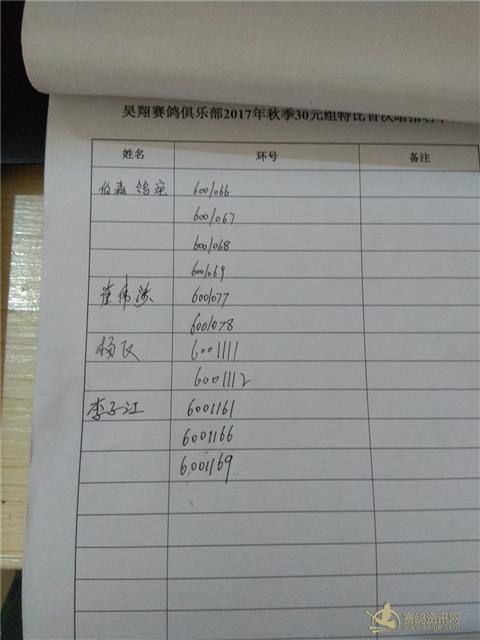 昊翔赛鸽俱乐部2017年秋季30元组特比
姓名 环号 备注
伯嘉鸽业 6001066
6001067
6001068
6001069
崔伟涛 6001077
6001078
杨民 6001111
6001112
李子江 6001161
6001166
6001169
赛鸽资讯网